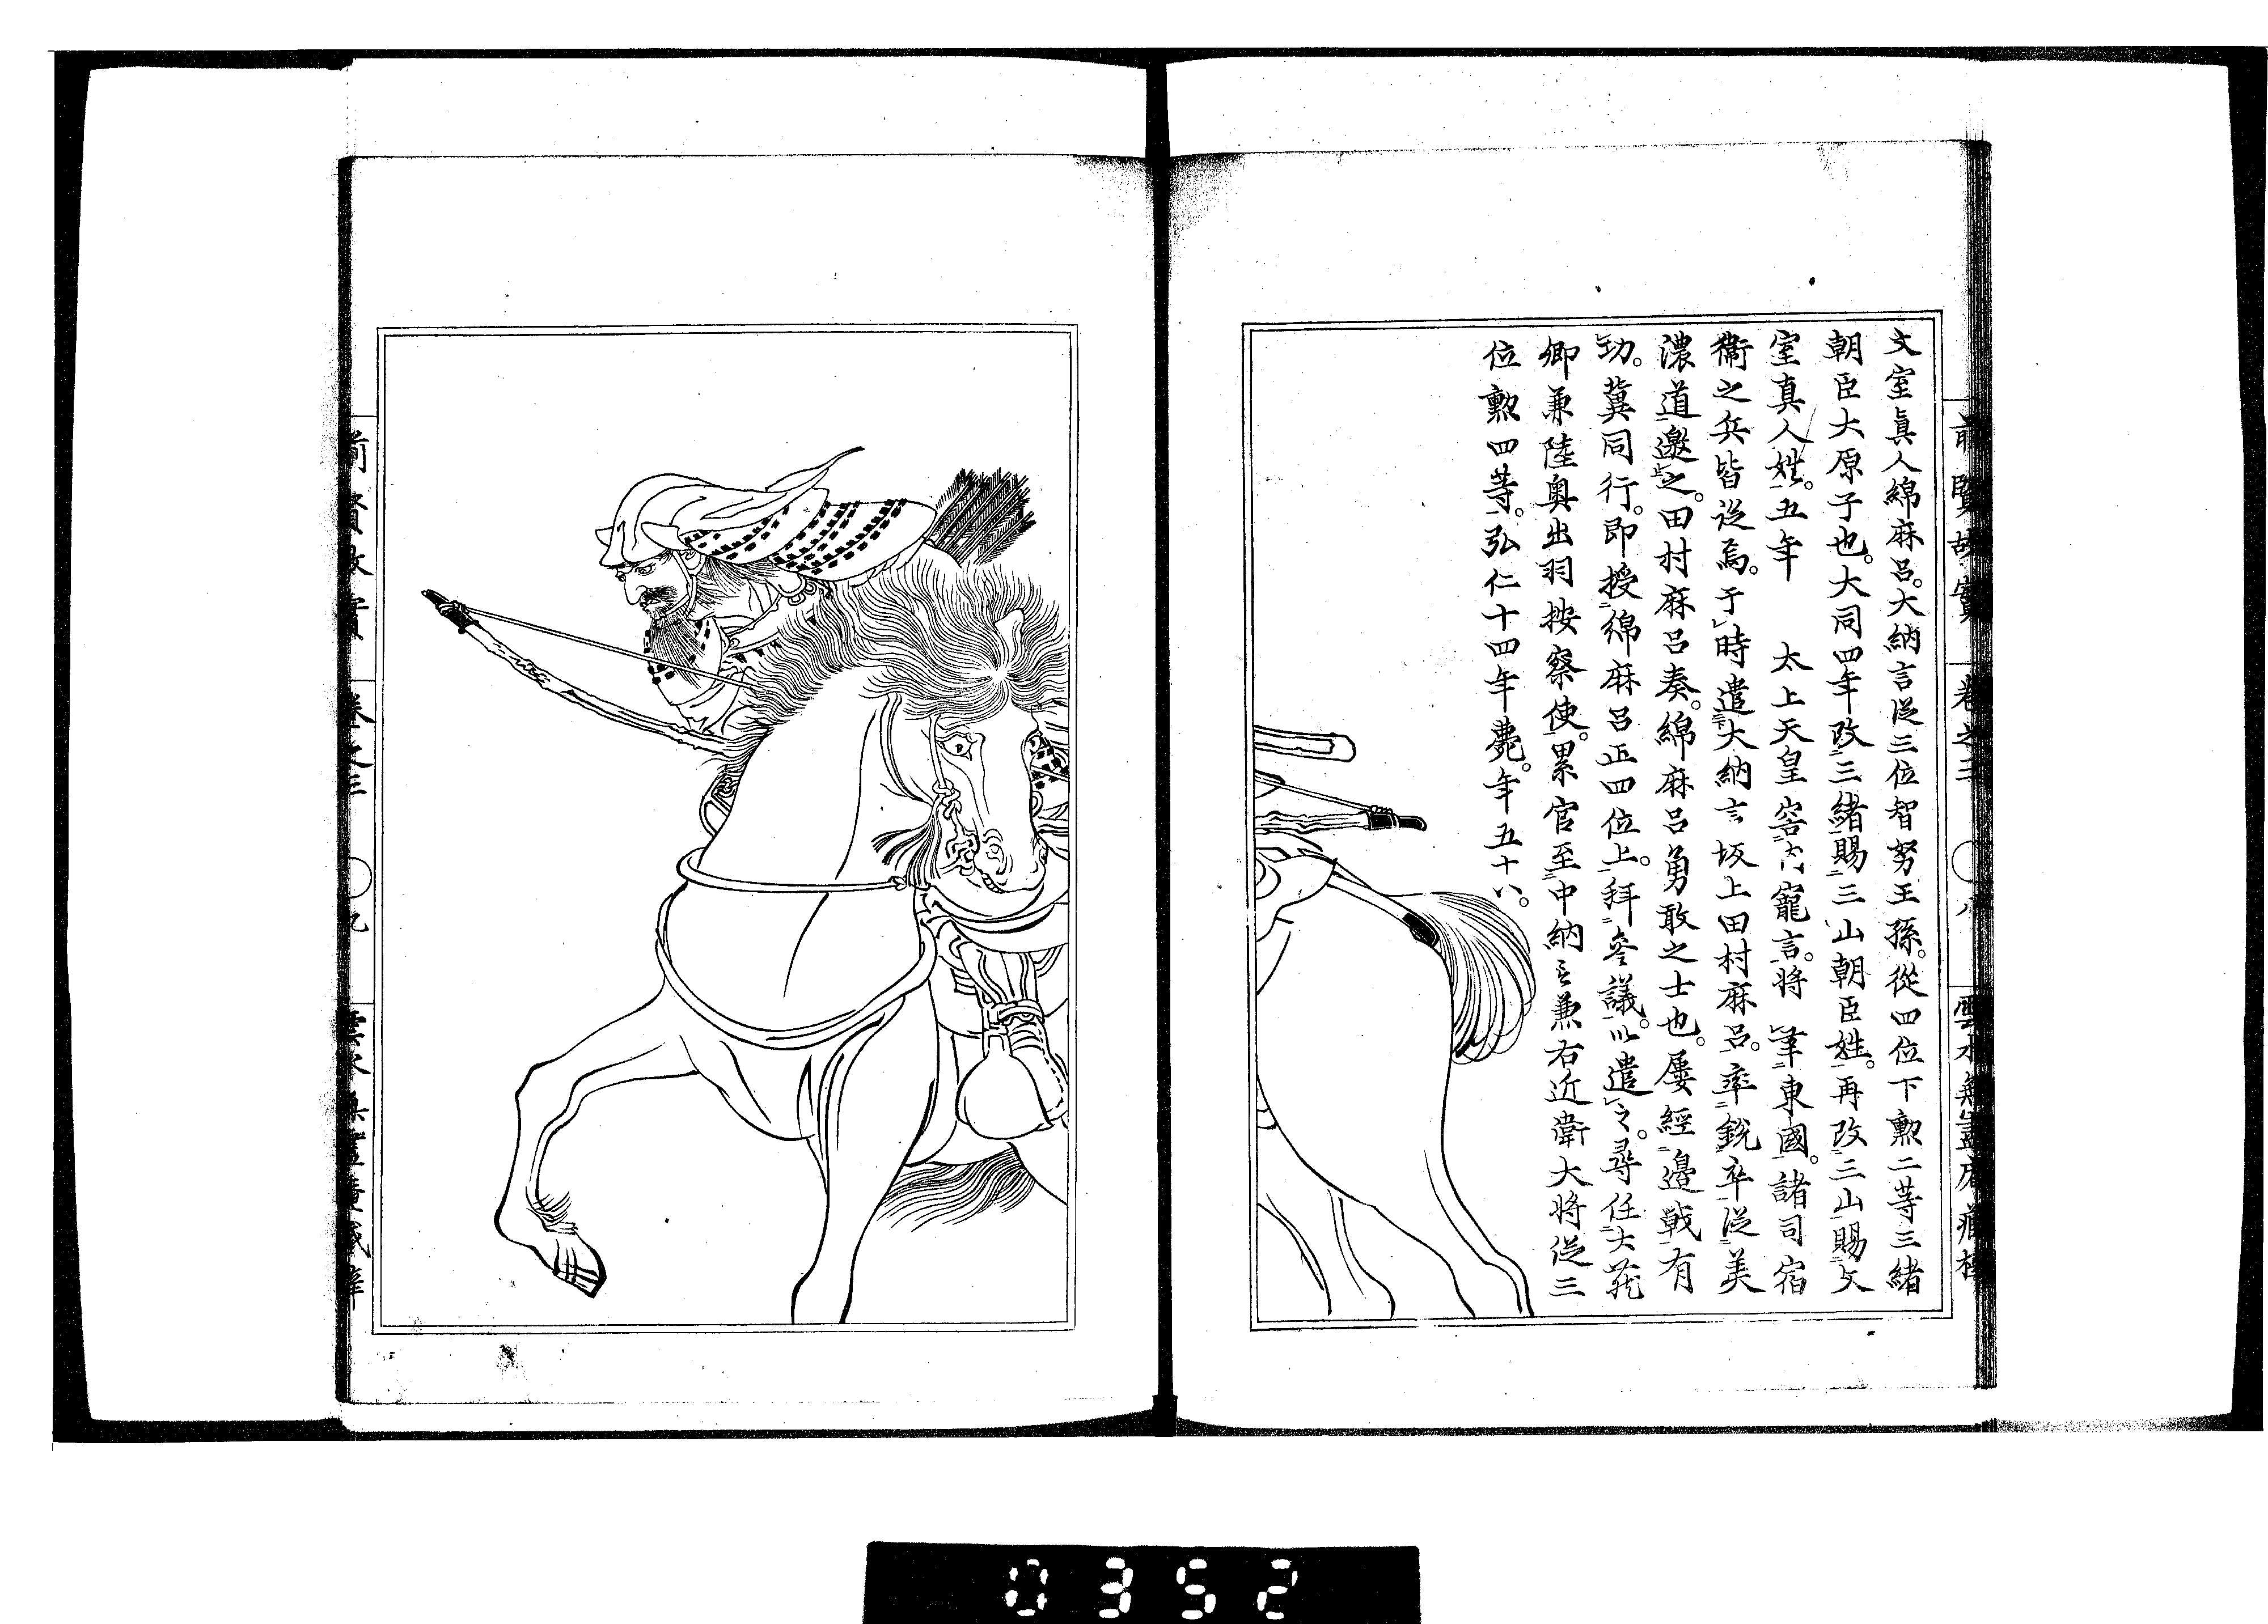 前賢故實 卷之三 〇八 雲水無盡庵藏
文室眞人綿麻呂。大納言從三位智努王孫。從四位下勲二等三緒
朝臣大原子也。大同四年改三緒賜三山朝臣姓。再改三山賜文
室真人姓。五年 太上天皇 内寵言。將 東國。諸司宿
衞之兵皆從焉。于時遣大納言坂上田村麻呂。率銳卒從美
濃道邀之。田村麻呂奏。綿麻呂勇敢之士也。屢經邊戰有
功。冀同行。即授綿麻呂正四位上。拜參議。以遣之。尋任大藏
卿兼陸奥出羽按察使。累官至中納言兼右近衛大將從三
位勲四等。弘仁十四年薨。年五十八。
前賢故實 卷之三 〇九
0352